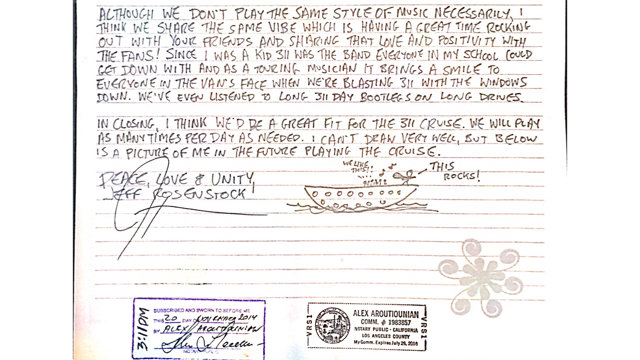 ALTHOUGH WE DON'T PLAY THE SAME STYLE OF MUSIC NECESSARILY, I
THINK WE SHARE THE SAME VIBE WHICH IS HAVING A GREAT TIME ROCKING
OUT WITH YOUR FRIENDS AND SHARING THAT LOVE AND POSITIVITY WITH
THE FANS! SINCE I WAS A KID 311 WAS THE BAND EVERYONE IN MY SCHOOL COULD
GET DOWN WITH AND AS A TOURING MUSICIAN IT BRINGS A SMILE TO
EVERYONE IN THE VAN'S FACE WHEN WE'RE BLASTING 311 WITH THE WINDOWS
DOWN. WE'VE EVEN LISTENED TO LONG 311 DAY BOOTLEGS ON LONG DRIVES.
IN CLOSING, I THINK WE'D BE A GREAT FIT FOR THE 311 CRUISE. WE WILL PLAY
AS MANY TIMES PER DAY AS NEEDED. I CAN'T DRAW VERY WELL, BUT BELOW
IS A PICTURE OF ME IN THE FUTURE PLAYING THE CRUISE.
WE LIKE
THIS!
THIS
ROCKS!
PEACE, LOVE & UNITY,
JEFF ROSENSTOCK
3:11PM
SUBSCRIBED AND SWORN TO BEFORE ME
THIS 20 DAY OF NOVEMBER 2014
BY ALEX AROUTIOUNIAN
VRS1
ALEX AROUTIOUNIAN
COMM. # 1983857
NOTARY PUBLIC - CALIFORNIA
LOS ANGELES COUNTY
My Comm. Expires July 25, 2016
VRS1